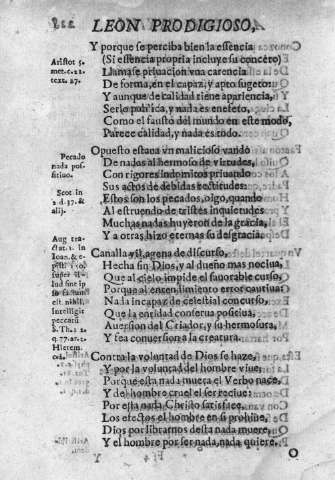 LEON PRODIGIOSO,
Y porque se perciba bien la essencia
(Si essencia propria incluye su conceto)
Llamase priuacion vna carencia
De forma, en el capaz, y apto sugeto:
Y aunque de calidad tiene apariencia,
Serlo publica, y nada es en efeto,
Como el fausto del mundo en este modo,
Parece calidad, y nada es todo.
Aristot 5.
met. c. 22.
text. 27.
Opuesto estaua vn malicioso vando
De nadas al hermoso de virtudes,
Con rigores indomitos priuando
Sus actos de debidas rectitudes:
Estos son los pecados, oigo, quando
Al estruendo de tristes inquietudes
Muchas nadas huyeron de la gracia,
Y a otras hizo eternas su desgracia.
Pecado
nada po-
sitiuo.
Scot in
2 d. 37. &
alij.
Canalla vil, agena de discurso,
Hecha sin Dios, y al dueño mas nociua,
Que al cielo impide el fauorable curso,
Porque al entendimiento error cautiua:
Nada incapaz de celestial concurso,
Que la entidad conserua posciua,
Auersion del Criador, y su hermosura,
Y fea conuersion a la creatura.
Aug tra-
ctat. 1. in
Ioan. &
nihil,
intelligit
peccatũ
S. Th. 1 2.
Hierem.
Contra la voluntad de Dios se haze,
Y por la voluntad del hombre viue;
Porque esta nada muera el Verbo nace,
Y del hombre cruel el ser reciue:
Por esta nada Christo satisface,
Los efectos el hombre en si prohiue,
Dios por librarnos desta nada muere,
Y el hombre por ser nada, nada quiere.
O